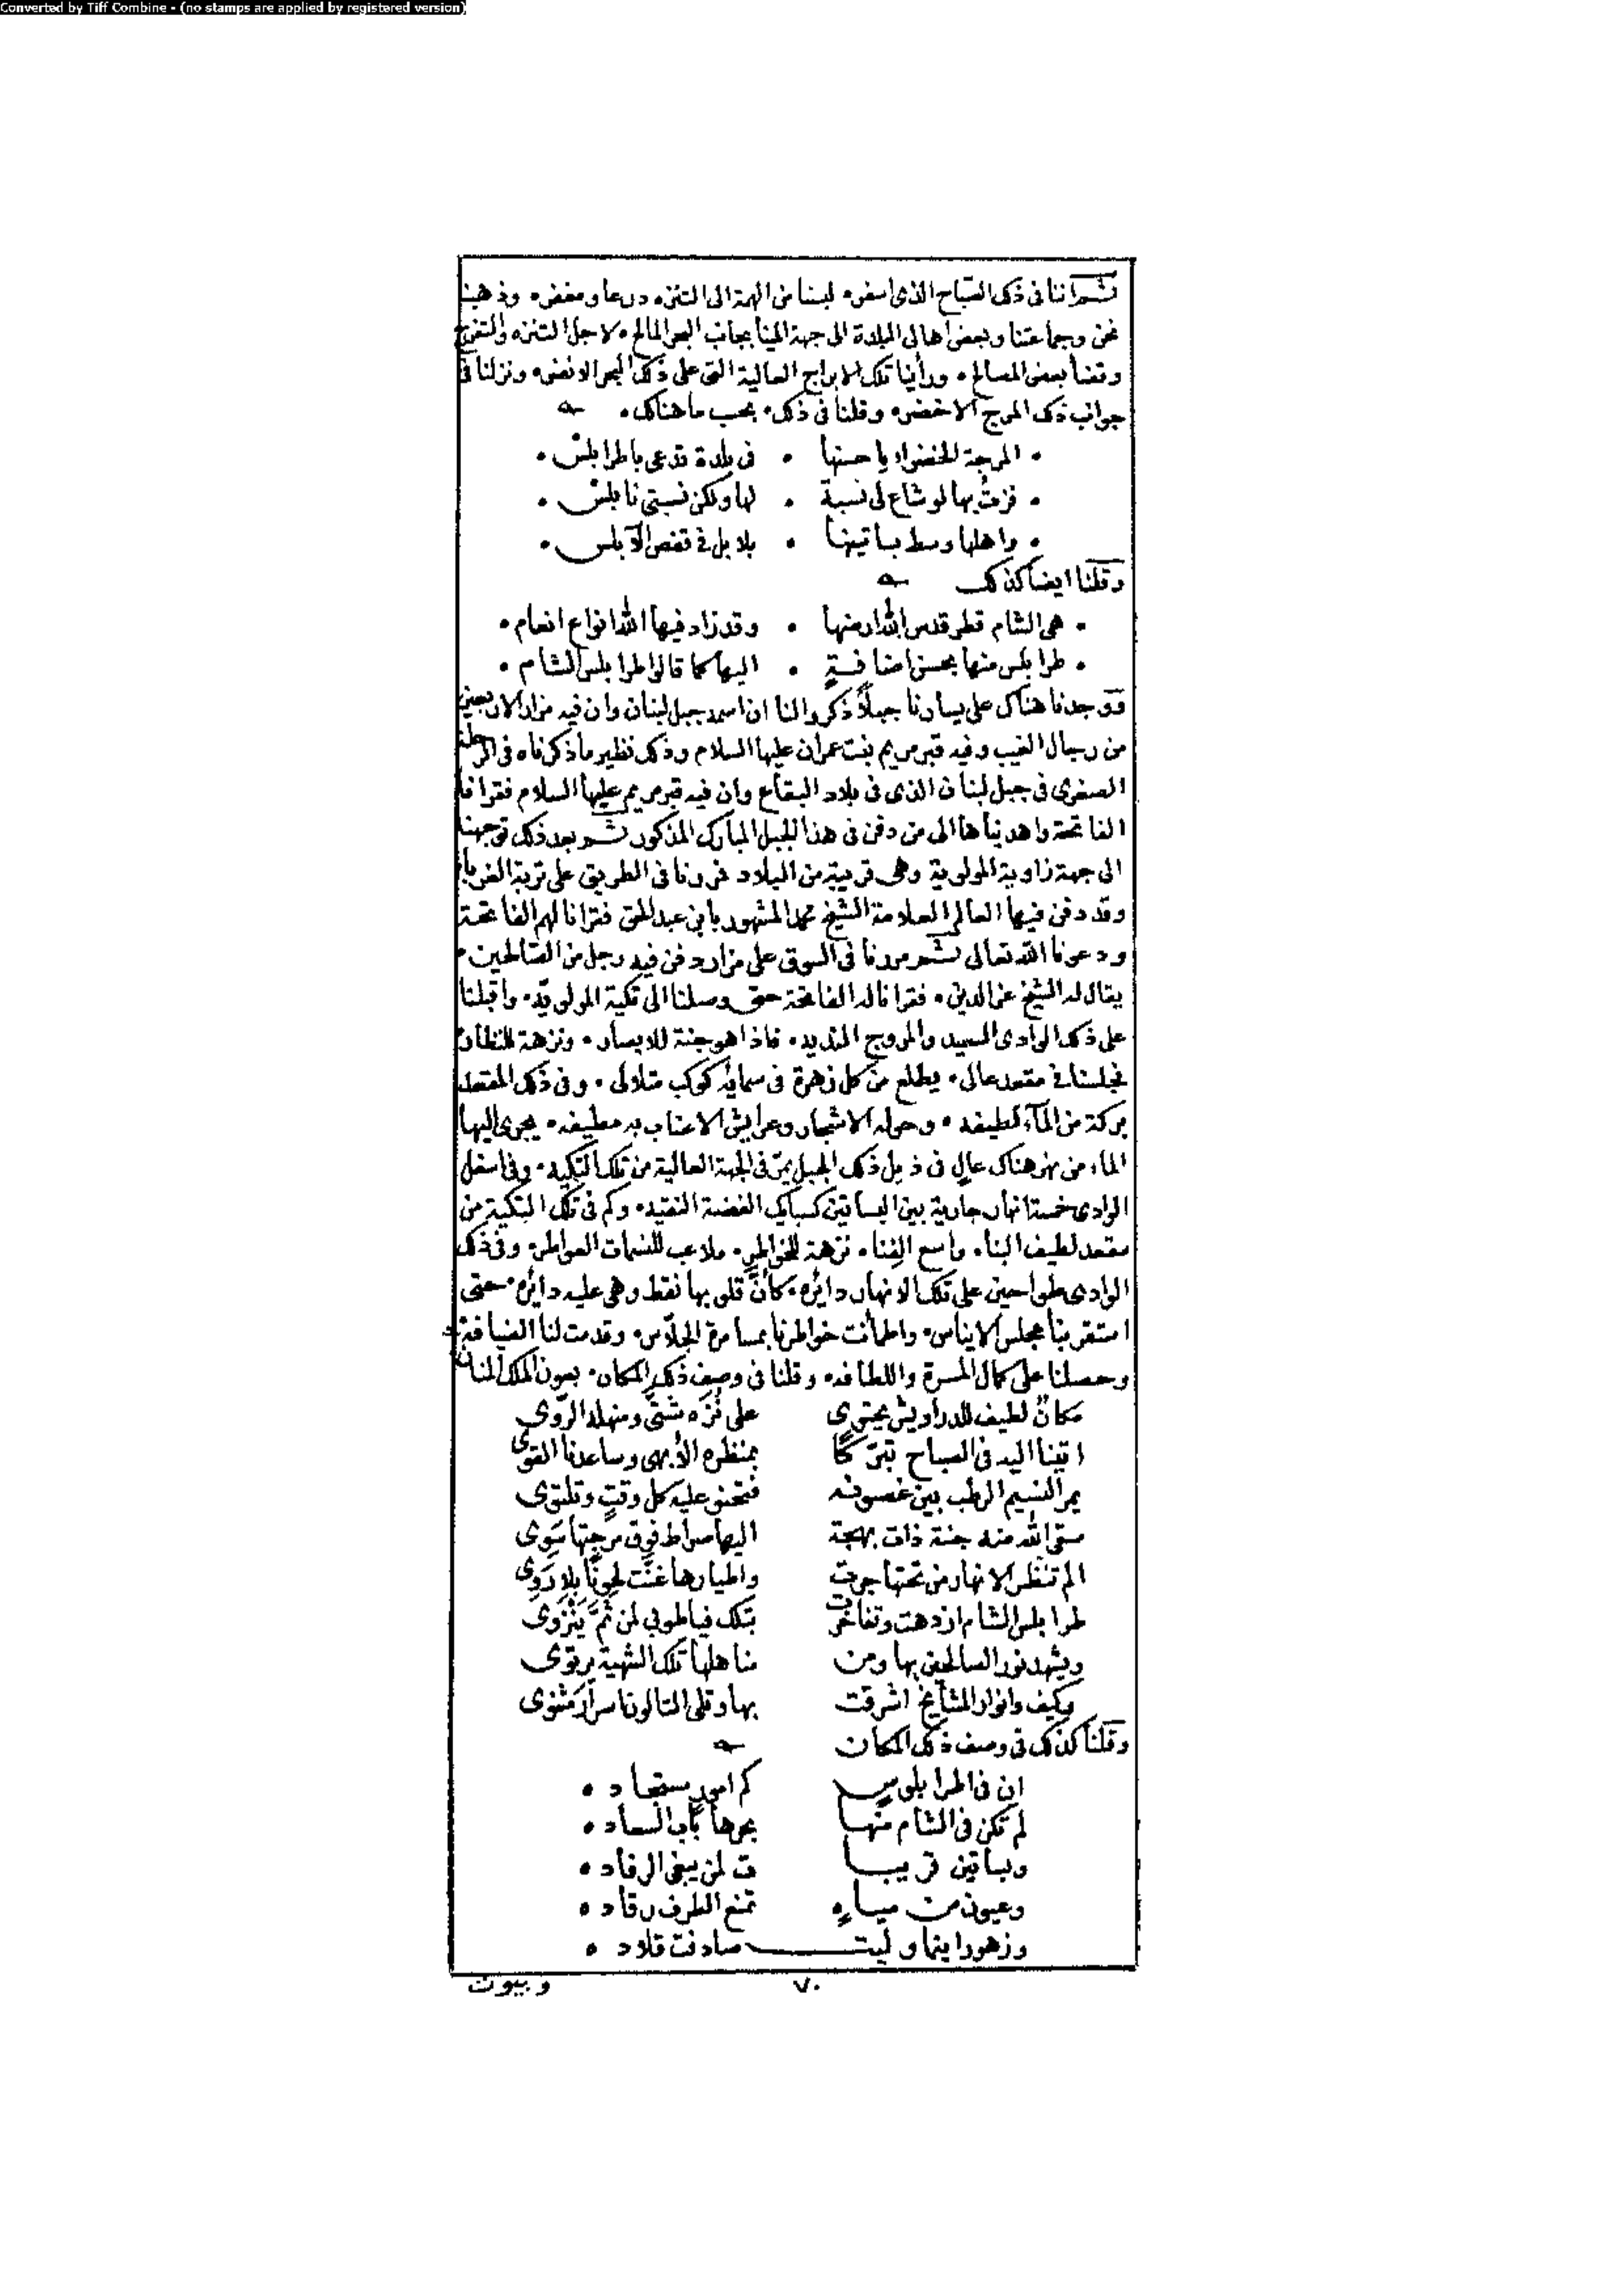 Converted by Tiff Combine - (no stamps are applied by registered version)
ثم اننا فى ذلك الصباح الذى اسفر، لبسنا من الهمة الى التنزه درعا ومغفر، وذهبنا
نحن وجماعتنا وبعض اهالى البلدة الى جهة المينا بجانب البحر المالح، لاجل التنزه والتفرج
وقضأ بعض المصالح، ورأينا تلك الابراج العالية التى على ذلك البحر ونزلنا فى
جوانب ذلك المرج الاخضر، وقلنا فى ذلك، بحسب ما هنالك،
المرجة الخضراء يا حسنها • فى بلدة تدعى باطرابلس
نزعت بها لو شاع لى نسبة • لها ولكن نسبتى نابلس
واهلها وسط بساتينها • بلابل فى قفص
وقلنا ايضا كذلك
هى الشام قطر قدس الله ارضها • وقد زاد فيها الله انواع انعام
طرابلس منها بحسن اضافةٍ • اليها كما قالوا طرابلس الشام
ووجدنا هناك على يسارنا جبلاً ذكروا لنا ان اسمه جبل لبنان وان فيه مزار الاربعين
من رجال الغيب وفيه قبر مريم بنت عمران عليها السلام وذلك نظير ما ذكرناه فى الرحلة
الصغرى فى جبل لبنان الذى فى بلاد البقاع وان فيه قبر مريم عليها السلام فقرانا
الفاتحة واهديناها الى من دفن فى هذا الجبل المبارك المذكور ثم بعد ذلك توجهنا
الى جهة زاوية المولوية وهى قريبة من البلاد فمررنا فى الطريق على تربة الغربأ
وقد دفن فيها العالم العلامة الشيخ محمد المشهور بابن عبد الحق فقرانا لهم الفاتحة
ودعونا الله تعالى ثم مررنا فى السوق على مزار دفن فيه رجل من الصالحين،
يقال له الشيخ عز الدين، فقرانا له الفاتحة حتى وصلنا الى تكية المولويه، واقبلنا
على ذلك الوادى السعيد والمروج النديه، فاذا هو جنة للابصار، ونزهة للنظار
فجلسنا فى مقعد عالى، يطلع من كل زهرة فى سمايه كوكب متلالى، وفى ذلك المقعد
بركة من المآء لطيفه، وحوله الاشجار وعرايش الاعناب به مطيفه، يجرى اليها
الماء من نهر هناك عالٍ فى ذيل ذلك الجبل يمرّ فى الجهة العالية من تلك التكيه، وفى اسفل
الوادى خمسة انهار جارية بين البساتين كسبايك الفضة النقيه، وكم فى تلك التكية من
مقعد لطيف البنا، واسع الفِنا، نزهة للخواطر، ملاعب للنسمات العواطر، وفى ذلك
الوادى طواحين على تلك الانهار دائره، كأنَّ قلوبها نقط وهى عليه دائره، حتى
استقر بنا مجلس الايناس، واطمأنت خواطرنا بمسامرة الجلّاس، وقدمت لنا الضيافة
وحصلنا على كمال المسرة واللطافه، وقلنا فى وصف ذلك المكان، بعون الملك المنان
مكانٌ لطيف للدراويش يحتوى على نُزَه شتى ومنهله الرّوى
اتينا اليه فى الصباح تبرّكًا بمنظره الأبهى وساعدنا القوى
يمر النسيم الرطب بين غصونه فتحنو عليه كل وقتٍ وتلتوى
سقى الله منه جنة ذات بهجة اليها صراط فوق مرجتها سَوِى
الم تنظر الانهار من تحتها جرت واطيارها غنَّت لحونًا بلا رَوِى
طرابلس الشام ازدهت وتفاخرت بتلك فيا طوبى لمن ثَمَّ يَنْزَوى
ويشهد نور الصالحين بها ومن مناهلها تلك الشهية يرتوى
وكيف وانوار المشايخ اشرقت بها وتلى التالون اسرار مثنوى
وقلنا كذلك فى وصف ذلك المكان
ان فى اطرابلوسٍ كم امورٍ مستجاد،
لم تكن فى الشام منها بحرها باب السعاد،
وبساتين قريبا ت لمن يبغى الرفاد،
وعيون من مياهٍ تمنع الطرف رقاد،
وزهور اينما وليت صادفت قلاد،
٧٠
وبيوت